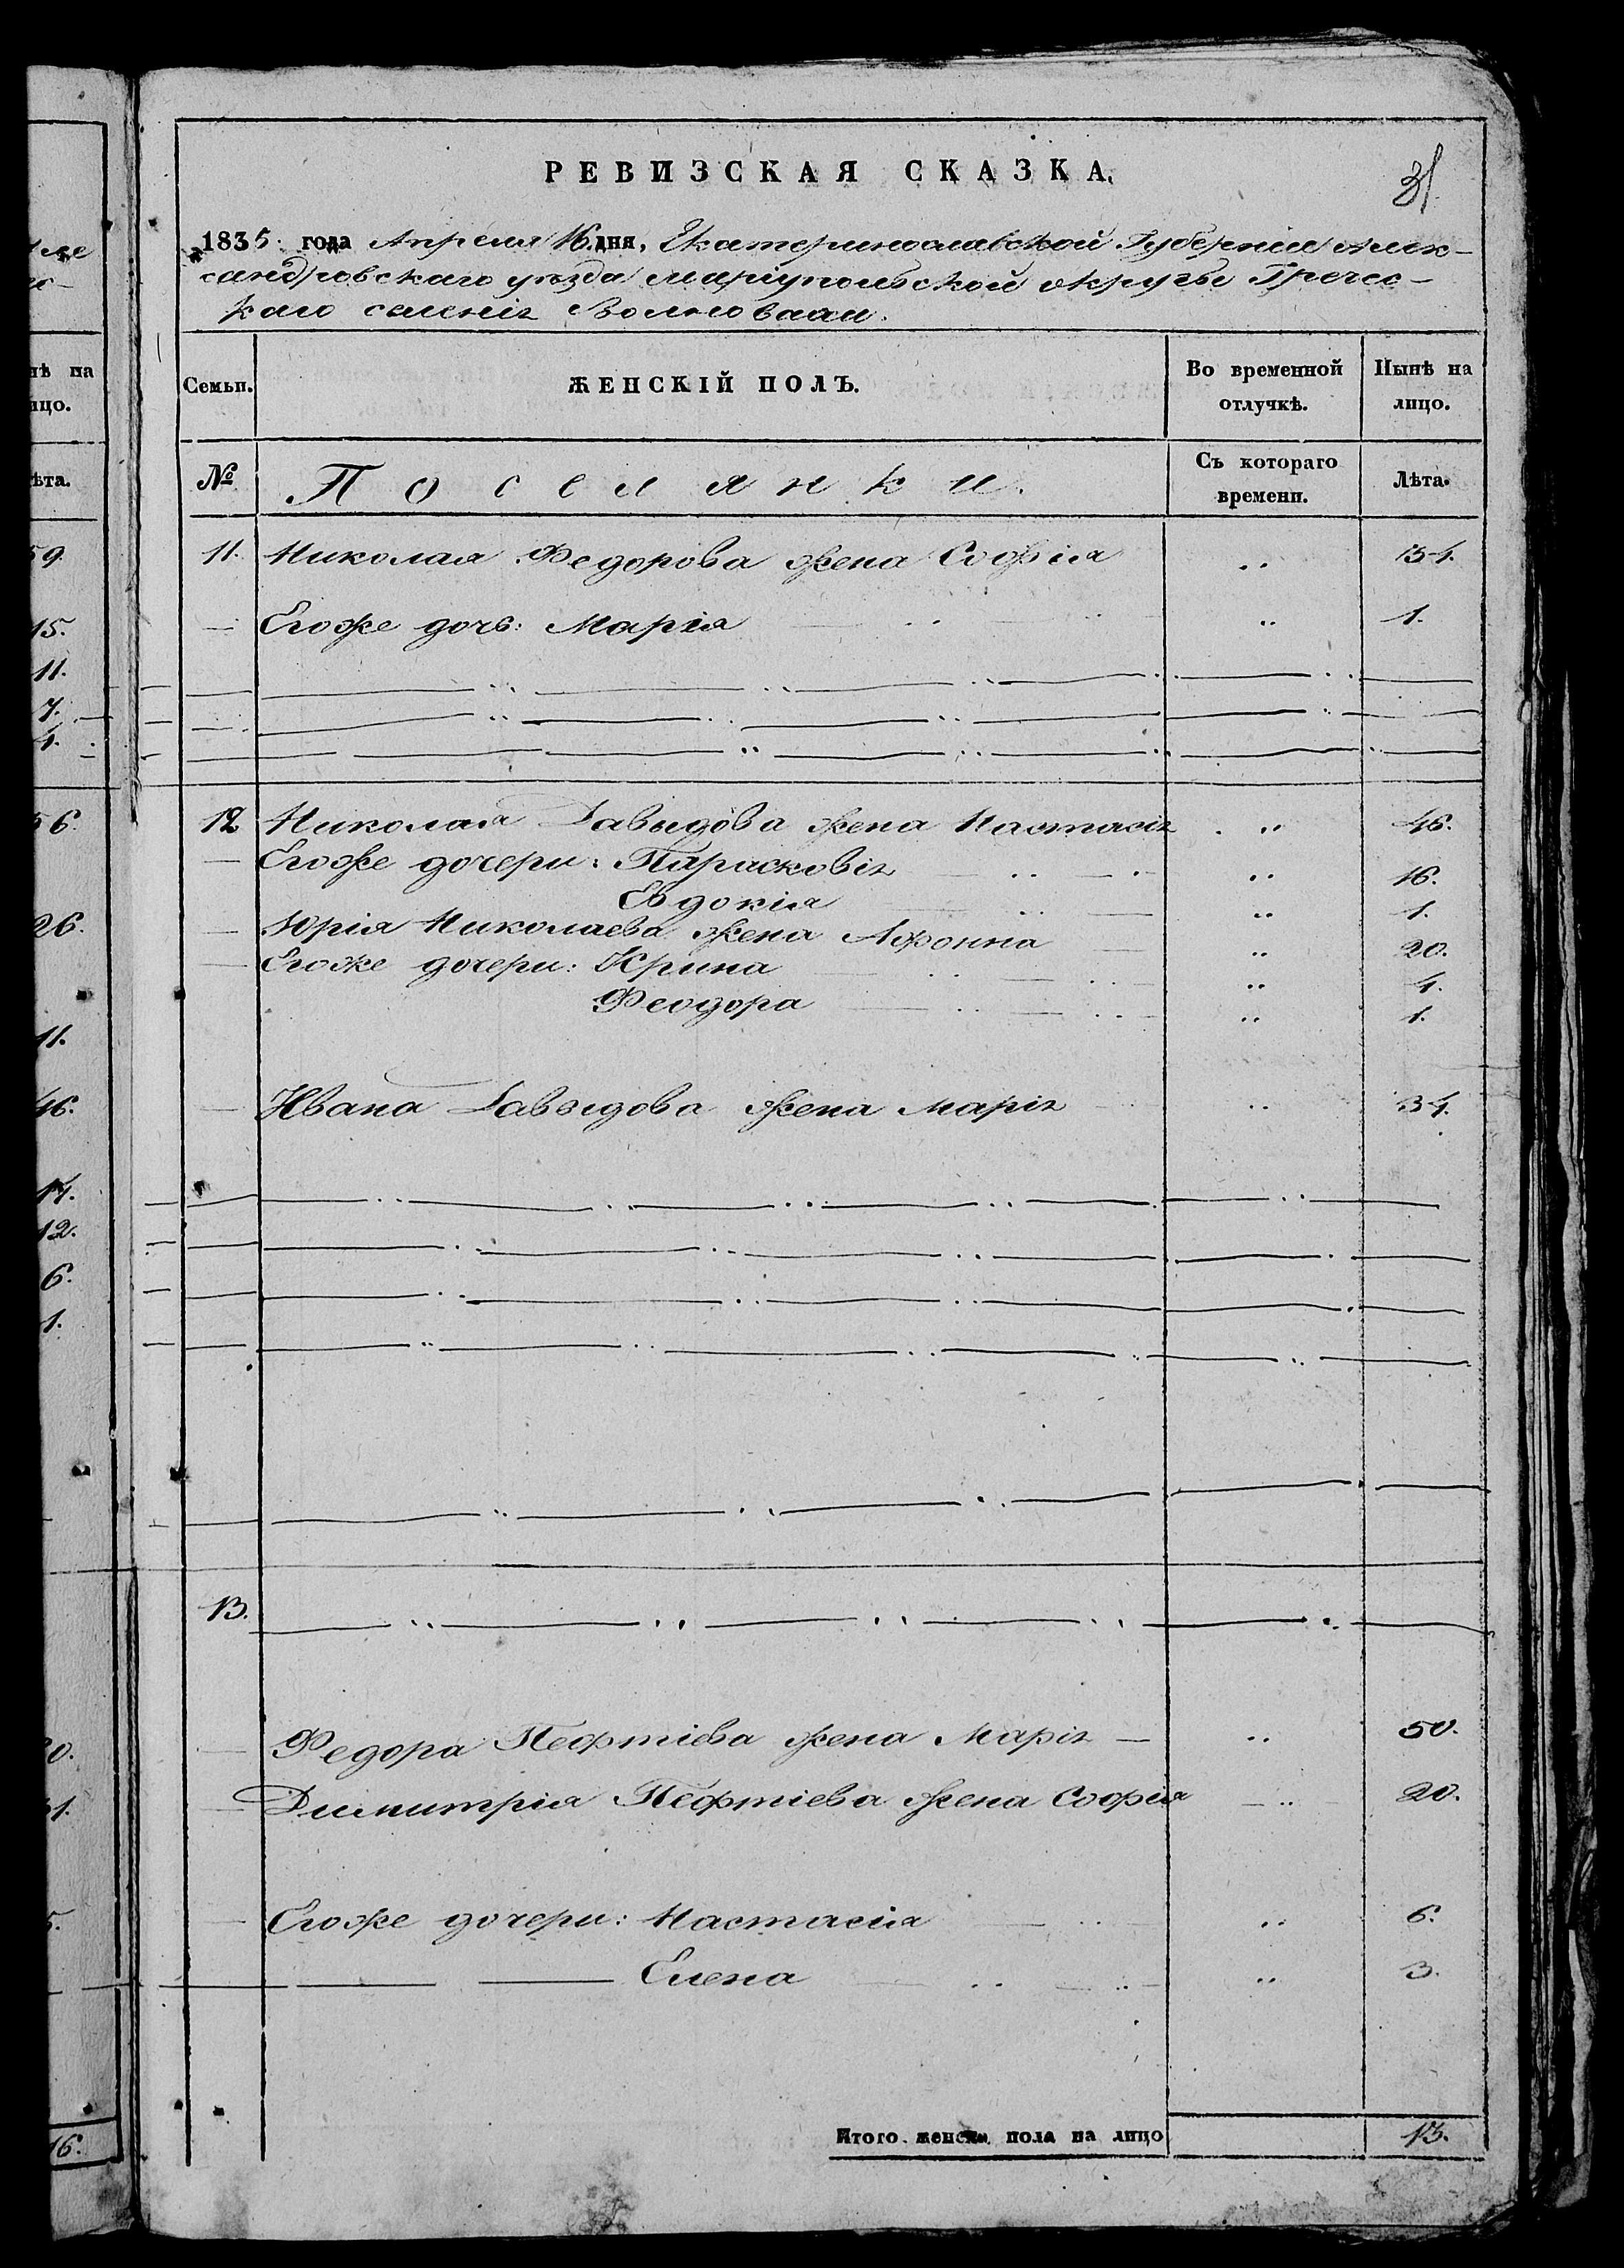 РЕВИЗСКАЯ СКАЗКА.
31.
1835 года Апреля 16 дня, Екатеринославской Губерніи Алек-
сандровскаго уѣзда Маріупольской округи Гречес-
каго селенія
Семьи. ЖЕНСКІЙ ПОЛЪ. Во временной отлучкѣ. Нынѣ на лицо.
№ Поселянки. Съ котораго времени. Лѣта.
11. Николая Федорова жена Софія .. 34.
— Егоже дочь: Марія .. 1.
12 Николая Давыдова жена Настасія .. 46.
— Егоже дочери: Парасковія .. 16.
Евдокія .. 1.
— Юрія Николаева жена Афонна .. 20.
— Егоже дочери: Ирина .. 4.
Феодора .. 1.
— Ивана Давыдова жена Марія .. 34.
13.
— Федора Пефтіева жена Марія — .. 50.
— Димитрія Пефтіева жена Софія .. 20.
— Егоже дочери: Настасія .. 6.
Елена .. 3.
Итого женска пола на лицо 13.
нѣ на
ицо.
ѣта.
59.
15.
11.
7.
4.
56.
26.
11.
46.
14.
12.
6.
1.
16.